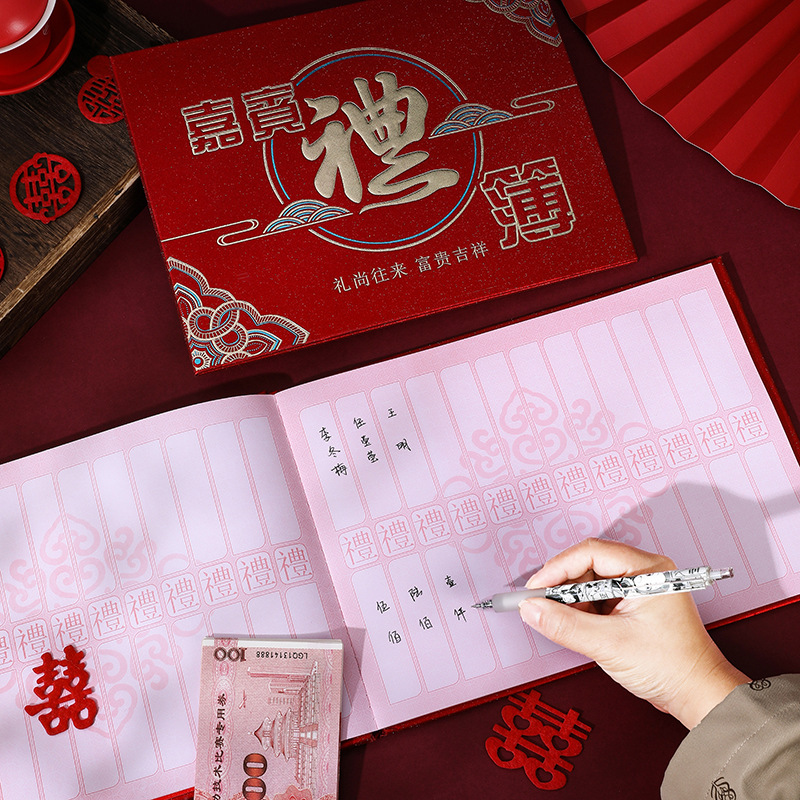 嘉賓
禮
簿
礼尚往来.富贵吉祥
囍
囍
王明
李冬梅
禮禮禮禮禮禮禮禮禮禮禮禮
禮禮禮禮禮禮禮禮
壹仟
陆佰
伍佰
囍
囍
100
LG013141888
技术比赛专用券